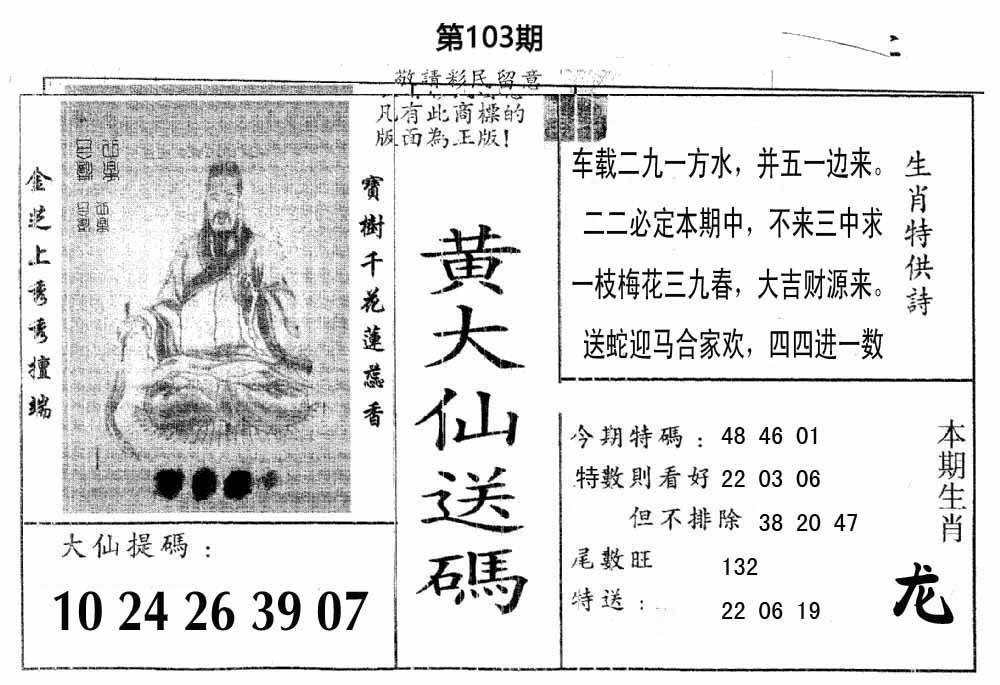 第103期
敬請彩民留意
凡有此商標的
版面為正版!
金芝上秀秀擅端
寶樹千花蓮蕊香
大仙提碼:
10 24 26 39 07
黄大仙送碼
生肖特供詩
车载二九一方水，并五一边来。
二二必定本期中，不来三中求
一枝梅花三九春，大吉财源来。
送蛇迎马合家欢，四四进一数
今期特碼: 48 46 01
特數則看好 22 03 06
但不排除 38 20 47
尾數旺 132
特送: 22 06 19
本期生肖
龙